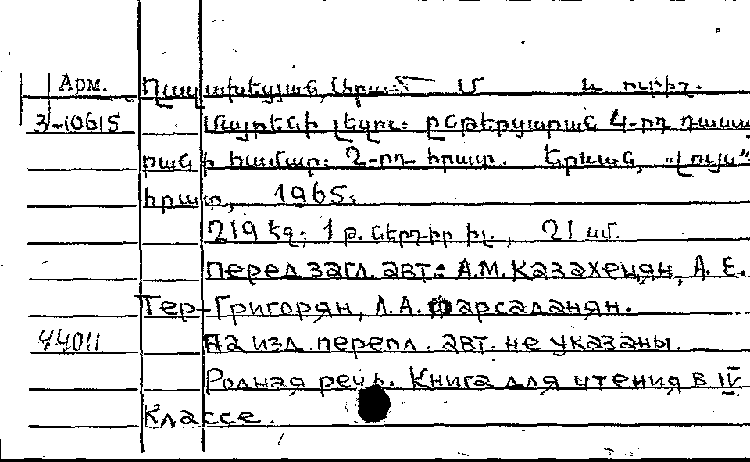 Арм. Ղազախեցյան, Մ և ուրիշ.
3-10615 Մայրենի լեզու: ընթերցարան 4-րդ դասա
րանի համար: 2-րդ հրատ. Երևան, „Լույս”
հրատ, 1965.
219 էջ; 1 թ. ներդիր իլ., 21 սմ.
Перед загл. авт.: А.М. Казахецян, А. Е.
Тер-Григорян, Л.А. Фарсаданян.
44011 На изд. перепл. авт. не указаны.
Родная речь. Книга для чтения в IV
классе.